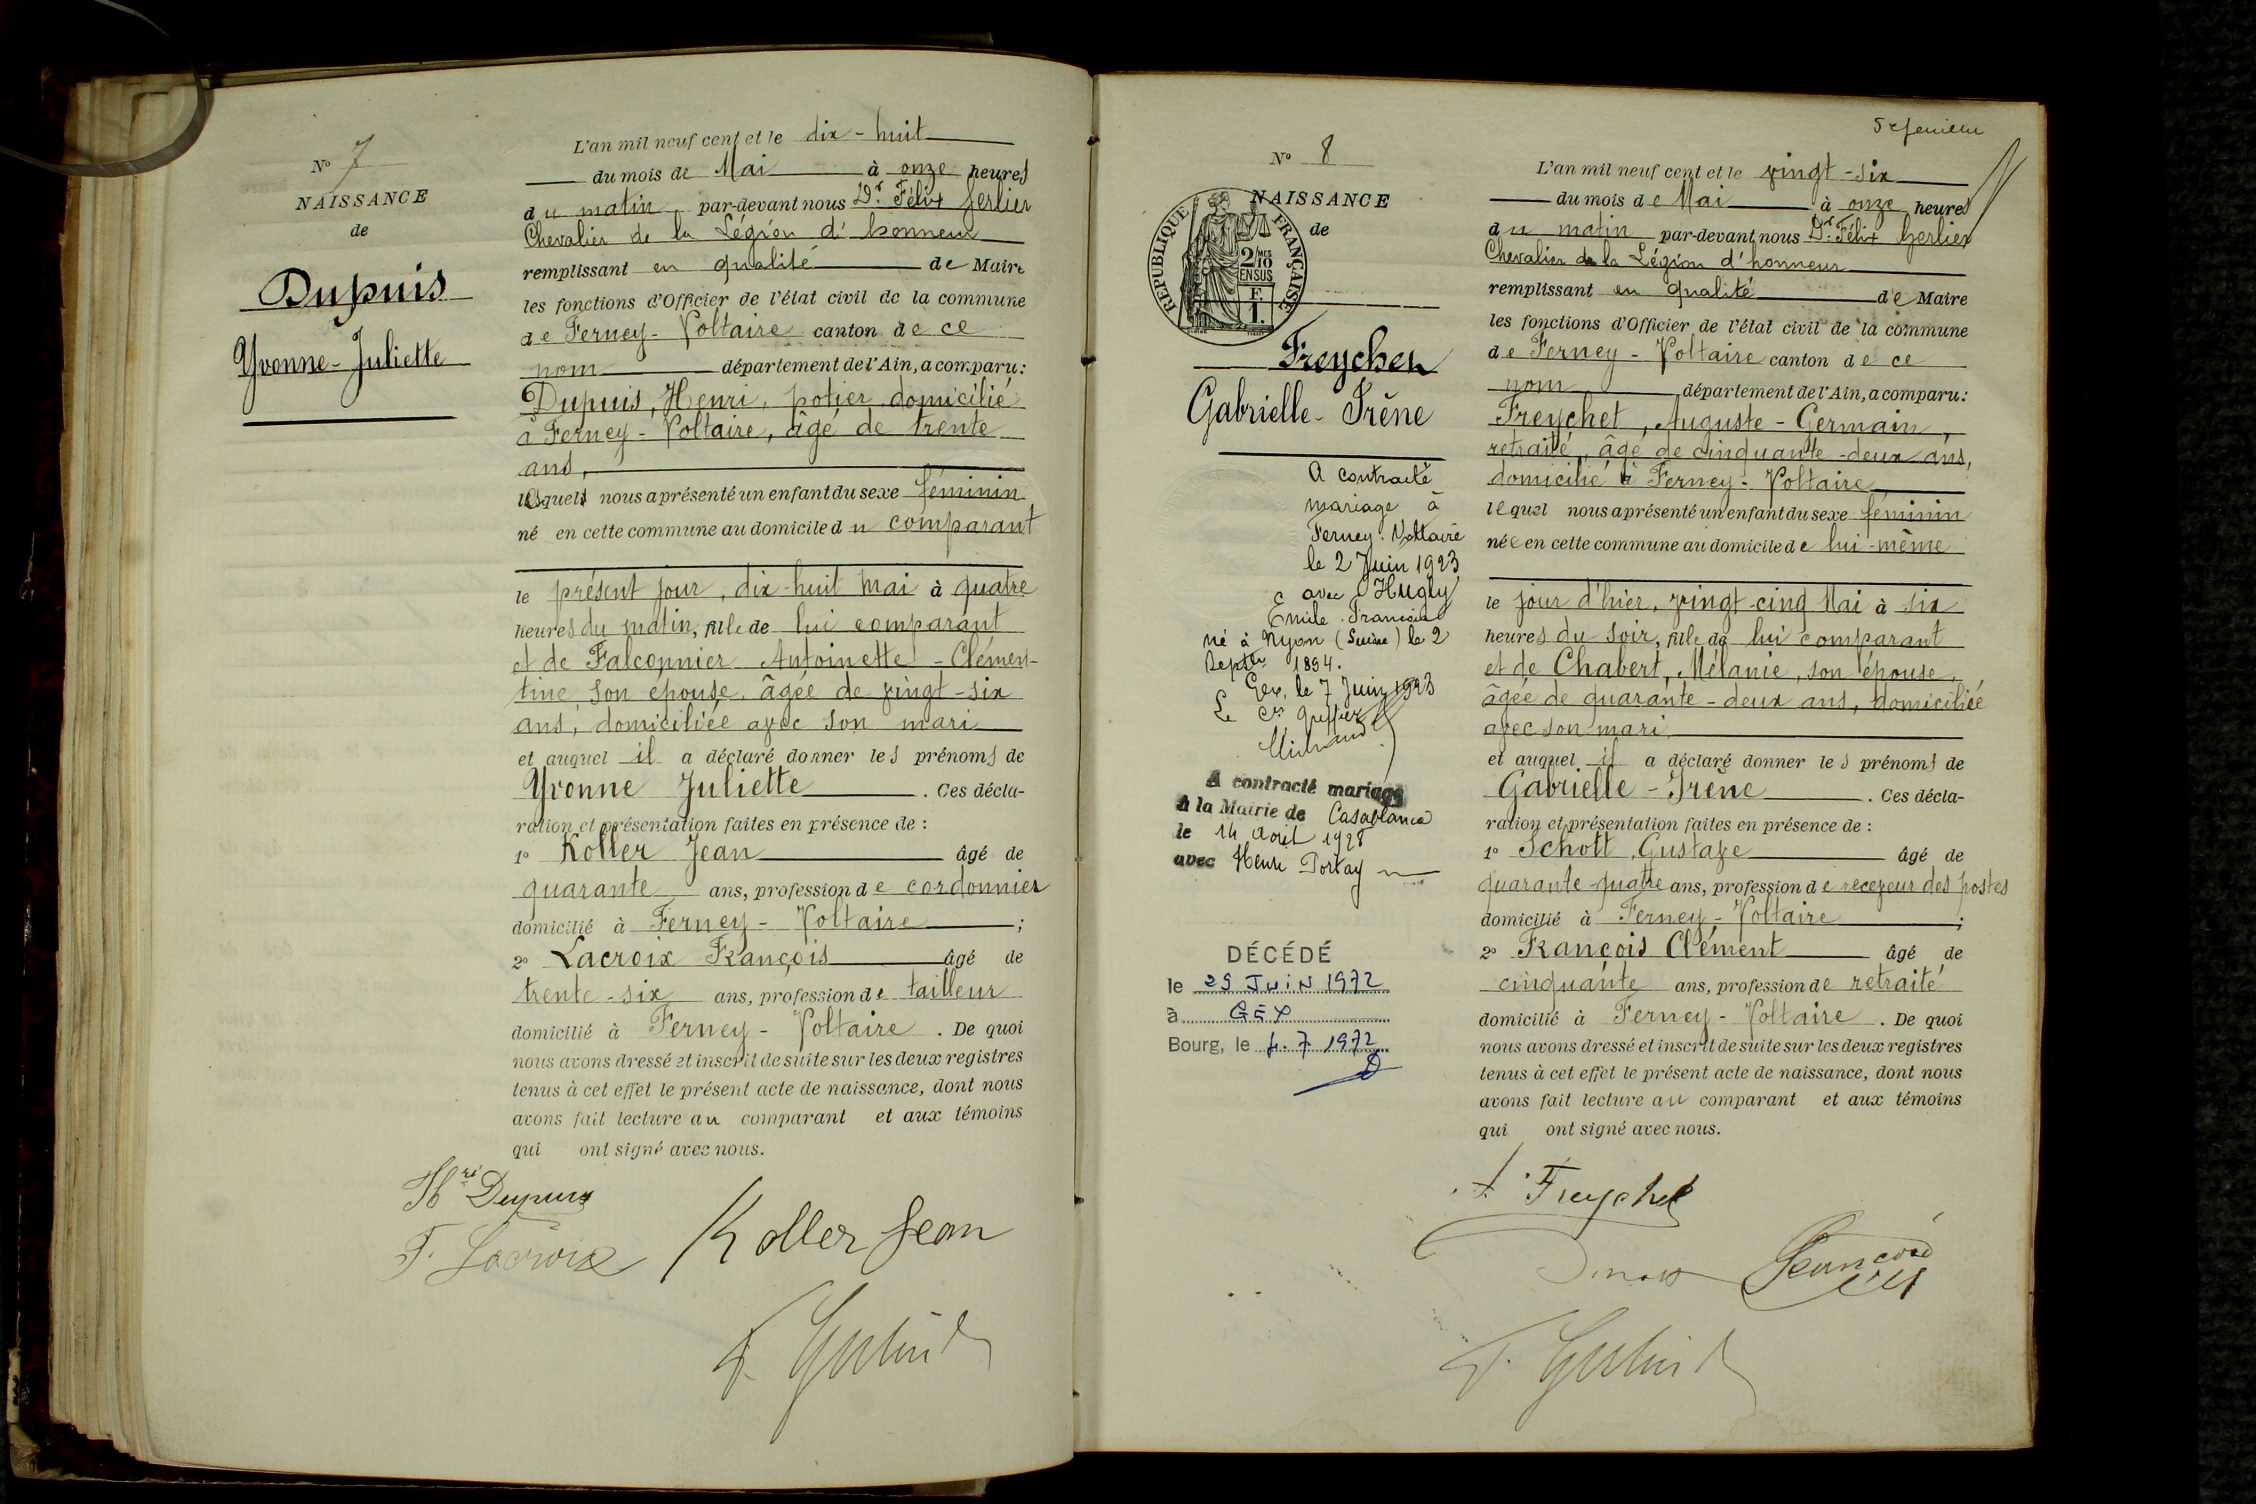 N° 7
NAISSANCE
de
Dupuis
Yvonne-Juliette
L'an mil neuf cent et le dix-huit
du mois de Mai à onze heures
du matin par-devant nous Dr Félix Gerlier
Chevalier de la Légion d'honneur
remplissant en qualité de Maire
les fonctions d'Officier de l'état civil de la commune
de Ferney-Voltaire canton de ce
nom département de l'Ain, a comparu:
Dupuis, Henri, potier, domicilié
à Ferney-Voltaire, âgé de trente
ans,
lequel nous a présenté un enfant du sexe féminin
né en cette commune au domicile du comparant
le présent jour, dix-huit Mai à quatre
heures du matin, fille de lui comparant
et de Falconnier Antoinette-Clémen-
tine son épouse, âgée de vingt-six
ans, domiciliée avec son mari
et auquel il a déclaré donner les prénoms de
Yvonne Juliette. Ces décla-
ration et présentation faites en présence de :
1° Koller Jean âgé de
quarante ans, profession de cordonnier
domicilié à Ferney-Voltaire ;
2° Lacroix François âgé de
trente-six ans, profession de tailleur
domicilié à Ferney-Voltaire. De quoi
nous avons dressé et inscrit de suite sur les deux registres
tenus à cet effet le présent acte de naissance, dont nous
avons fait lecture au comparant et aux témoins
qui ont signé avec nous.
Hri Dupuis
F. Lacroix Koller Jean
5e feuillet
N° 8
NAISSANCE
de
RÉPUBLIQUE FRANÇAISE
2/10 MES
EN SUS
F.
1.
Freychet
Gabrielle-Irène
A contracté
mariage à
Ferney-Voltaire
le 2 Juin 1923
avec Hugly
Emile François
né à Nyon (Suisse) le 2
Septbre 1894.
Gex, le 7 Juin 1923
Le Cis Greffier
A contracté mariage
à la Mairie de Casablanca
le 14 août 1928
avec Henri Portay
DÉCÉDÉ
le 29 JUIN 1972
à GEX
Bourg, le 4.7.1972
L'an mil neuf cent et le vingt-six
du mois de Mai à onze heures
du matin par-devant nous Dr Félix Gerlier
Chevalier de la Légion d'honneur
remplissant en qualité de Maire
les fonctions d'Officier de l'état civil de la commune
de Ferney-Voltaire canton de ce
nom département de l'Ain, a comparu:
Freychet, Auguste-Germain,
retraité, âgé de cinquante-deux ans,
domicilié à Ferney-Voltaire
lequel nous a présenté un enfant du sexe féminin
née en cette commune au domicile de lui-même
le jour d'hier, vingt-cinq Mai à six
heures du soir, fille de lui comparant
et de Chabert, Mélanie, son épouse,
âgée de quarante-deux ans, domiciliée
avec son mari
et auquel il a déclaré donner les prénoms de
Gabrielle-Irène. Ces décla-
ration et présentation faites en présence de :
1° Schott, Gustave âgé de
quarante-quatre ans, profession de receveur des postes
domicilié à Ferney-Voltaire ;
2° François Clément âgé de
cinquante ans, profession de retraité
domicilié à Ferney-Voltaire. De quoi
nous avons dressé et inscrit de suite sur les deux registres
tenus à cet effet le présent acte de naissance, dont nous
avons fait lecture au comparant et aux témoins
qui ont signé avec nous.
A. Freychet